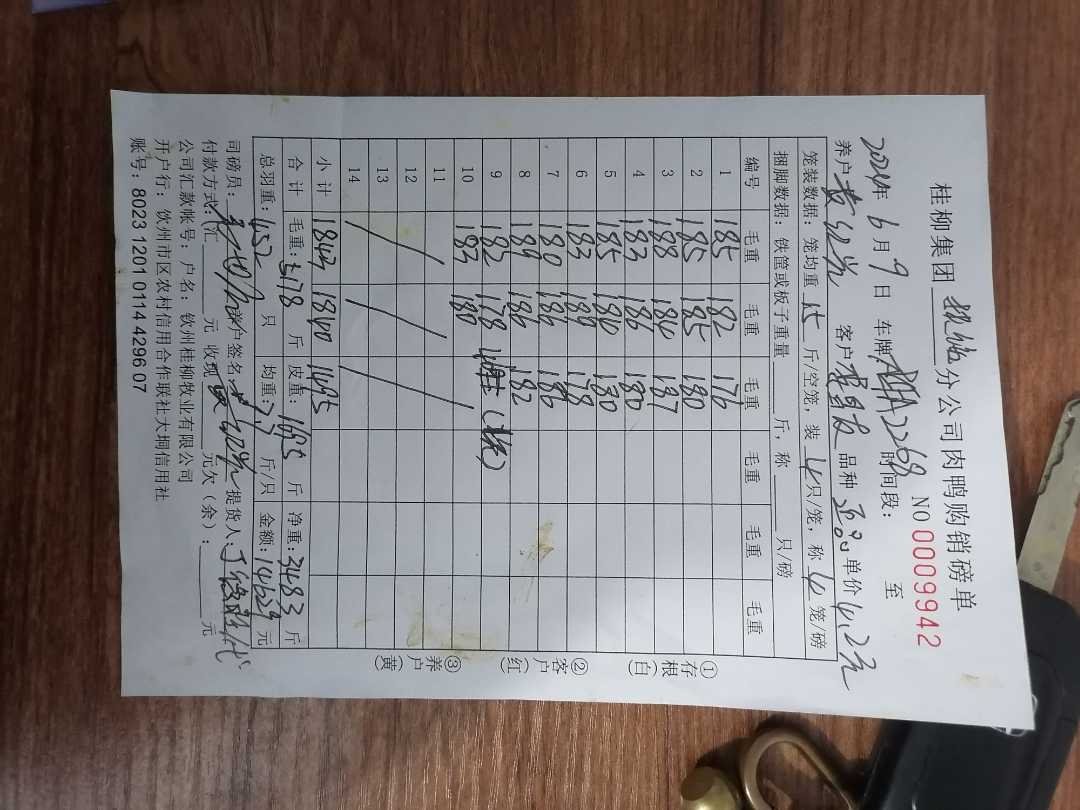 桂柳集团 分公司肉鸭购销磅单
NO 0009942
2024年 6月 9日 车牌 时间段: 至
养户 客户 品种 单价 4.2元
笼装数据: 笼均重 15 斤/空笼, 装 4 只/笼, 称 4 笼/磅
捆脚数据: 铁筐或板子重量 斤, 称 只/磅
编号 毛重 毛重 毛重 毛重 毛重 毛重
1 185 182 176
2 185 185 180
3 188 184 187
4 183 186 180
5 185 184 180
6 183 189 178
7 180 186 186
8 189 184 182
9 182 178
10 183 180
11
12
13
14
小计 1843 1840 1495
合计 毛重: 5178 斤 皮重: 1695 斤 净重: 3483 斤
总羽重: 452 只 均重: 7.7 斤/只 金额: 14629 元
司磅员: 养户签名: 提货人:
付款方式: 汇 元 收现 元欠(余): 元
公司汇款帐号: 户名: 钦州桂柳牧业有限公司
开户行: 钦州市区农村信用合作联社大垌信用社
账号: 8023 1201 0114 4296 07
①存根(白)
②客户(红)
③养户(黄)